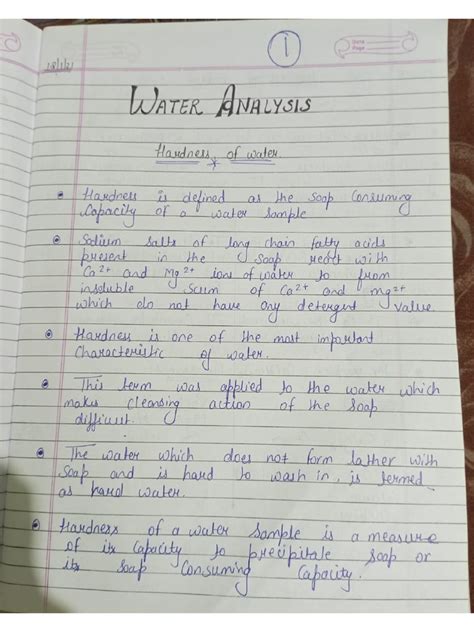 1
Date
Page
18/1/21
WATER ANALYSIS
Hardness of water.
Hardness is defined as the Soap Consuming
Capacity of a water sample
Sodium salts of long chain fatty acids
present in the Soap react with
Ca2+ and Mg2+ ions of water to from
insoluble Scum of Ca2+ and mg2+
which do not have any detergent value
Hardness is one of the most important
Characteristic of water.
This term was applied to the water which
makes cleansing action of the Soap
difficult.
The water which does not form lather with
Soap and is hard to wash in, is termed
as hard water.
Hardness of a water Sample is a measure
of its Capacity to precipitate Soap or
its Soap Consuming Capacity.